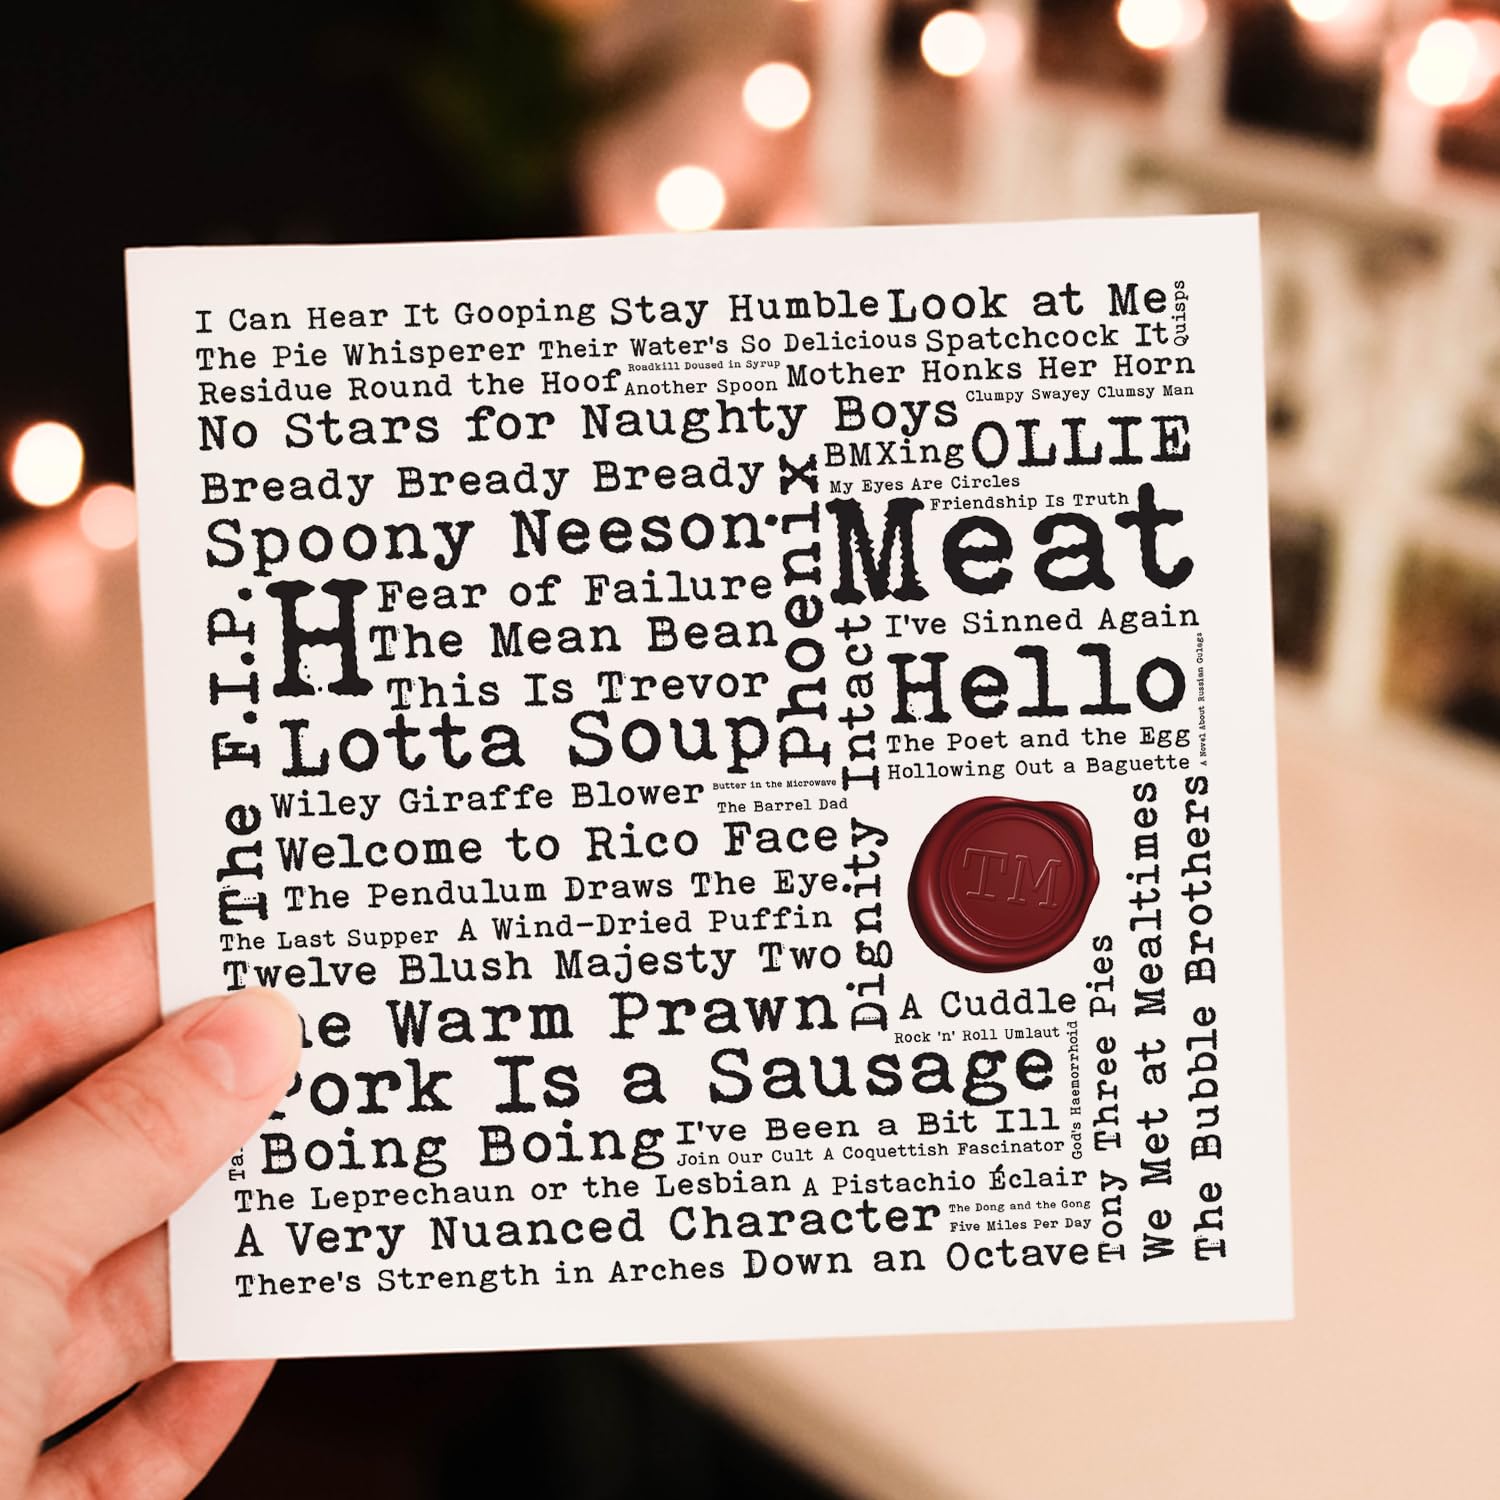 I Can Hear It Gooping
Stay Humble
Look at Me
Quisps
The Pie Whisperer
Their Water's So Delicious
Spatchcock It
Residue Round the Hoof
Roadkill Doused in Syrup
Another Spoon
Mother Honks Her Horn
No Stars for Naughty Boys
Clumpy Swayey Clumsy Man
Bready Bready Bready
Phoenix
BMXing
OLLIE
My Eyes Are Circles
Friendship Is Truth
Spoony Neeson
Meat
The F.I.P.
H
Fear of Failure
The Mean Bean
This Is Trevor
Intact
I've Sinned Again
Hello
A Novel About Russian Gulags
Lotta Soup
The Poet and the Egg
Hollowing Out a Baguette
Wiley Giraffe Blower
Butter in the Microwave
The Barrel Dad
Welcome to Rico Face
The Pendulum Draws The Eye
Dignity
TM
We Met at Mealtimes
The Bubble Brothers
The Last Supper
A Wind-Dried Puffin
Twelve Blush Majesty Two
he Warm Prawn
A Cuddle
Rock 'n' Roll Umlaut
Tony Three Pies
Pork Is a Sausage
God's Haemorrhoid
Boing Boing
I've Been a Bit Ill
Join Our Cult
A Coquettish Fascinator
Ta
The Leprechaun or the Lesbian
A Pistachio Éclair
A Very Nuanced Character
The Dong and the Gong
Five Miles Per Day
There's Strength in Arches
Down an Octave